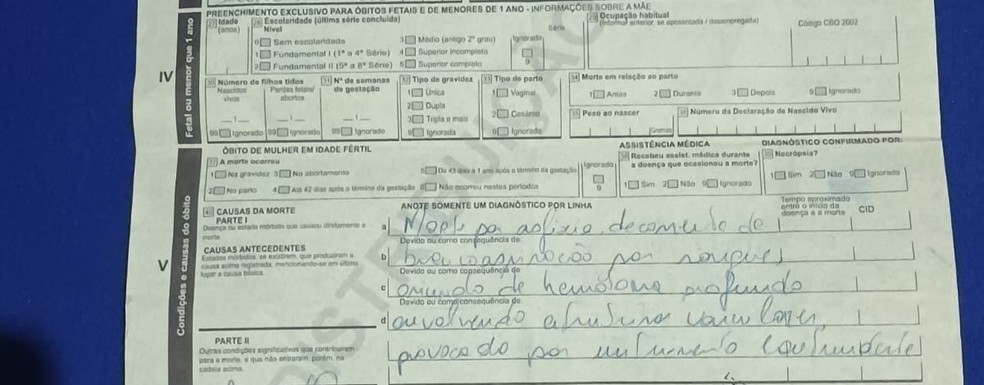 PREENCHIMENTO EXCLUSIVO PARA ÓBITOS FETAIS E DE MENORES DE 1 ANO - INFORMAÇÕES SOBRE A MÃE
27 Idade (anos)
28 Escolaridade (última série concluída)
Nível
Série
0 Sem escolaridade
1 Fundamental I (1ª a 4ª Série)
2 Fundamental II (5ª a 8ª Série)
3 Médio (antigo 2º grau)
4 Superior incompleto
5 Superior completo
Ignorado
9
29 Ocupação habitual
(informar anterior, se aposentada / desempregada)
Código CBO 2002
IV
Fetal ou menor que 1 ano
30 Número de filhos tidos
Nascidos vivos
Perdas fetais/ abortos
99 Ignorado 99 Ignorado
31 Nº de semanas de gestação
99 Ignorado
32 Tipo de gravidez
1 Única
2 Dupla
3 Tripla e mais
9 Ignorada
33 Tipo de parto
1 Vaginal
2 Cesáreo
9 Ignorado
34 Morte em relação ao parto
1 Antes 2 Durante 3 Depois 9 Ignorado
35 Peso ao nascer
Gramas
36 Número da Declaração de Nascido Vivo
V
Condições e causas do óbito
ÓBITO DE MULHER EM IDADE FÉRTIL
37 A morte ocorreu
1 Na gravidez 3 No abortamento
5 De 43 dias a 1 ano após o término da gestação
2 No parto 4 Até 42 dias após o término da gestação
8 Não ocorreu nestes períodos
Ignorado
9
ASSISTÊNCIA MÉDICA
38 Recebeu assist. médica durante a doença que ocasionou a morte?
1 Sim 2 Não 9 Ignorado
DIAGNÓSTICO CONFIRMADO POR:
39 Necrópsia?
1 Sim 2 Não 9 Ignorado
40 CAUSAS DA MORTE
PARTE I
Doença ou estado mórbido que causou diretamente a morte
ANOTE SOMENTE UM DIAGNÓSTICO POR LINHA
Tempo aproximado entre o início da doença e a morte
CID
a Morte por asfixia, decorrente de
Devido ou como consequência de:
CAUSAS ANTECEDENTES
Estados mórbidos, se existirem, que produziram a causa acima registrada, mencionando-se em último lugar a causa básica
b broncoaspiração por sangue,
Devido ou como consequência de:
c oriundo de hematoma profundo
Devido ou como consequência de:
d envolvendo estruturas vasculares,
PARTE II
Outras condições significativas que contribuíram para a morte, e que não entraram, porém, na cadeia acima.
provocado por instrumento contundente